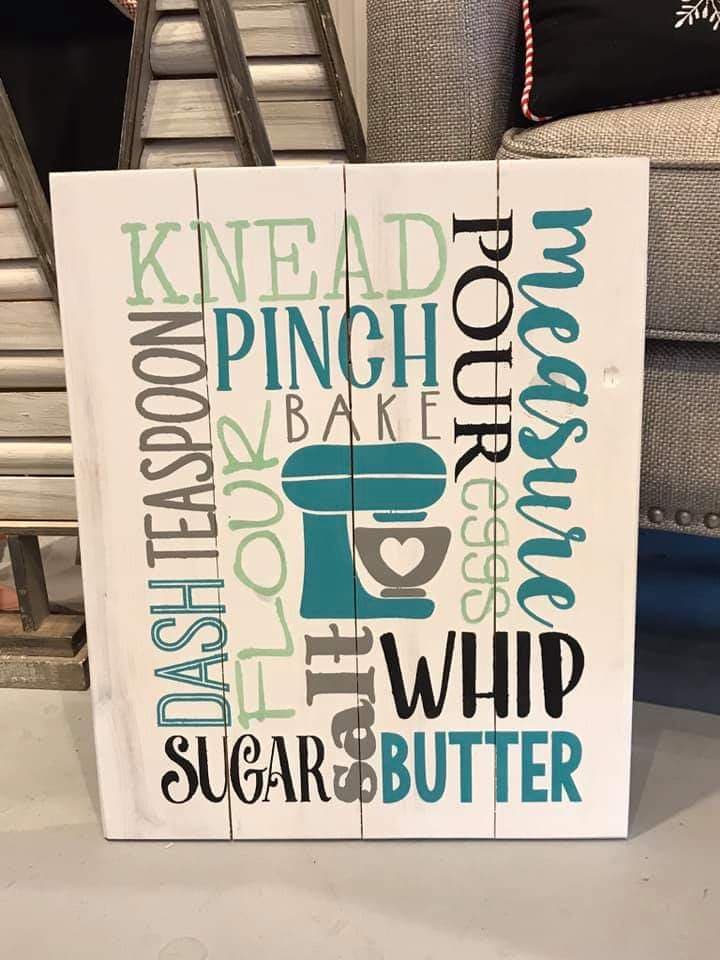 KNEAD
PINCH
BAKE
POUR
measure
TEASPOON
FLOUR
eggs
DASH
salt
WHIP
SUGAR
BUTTER